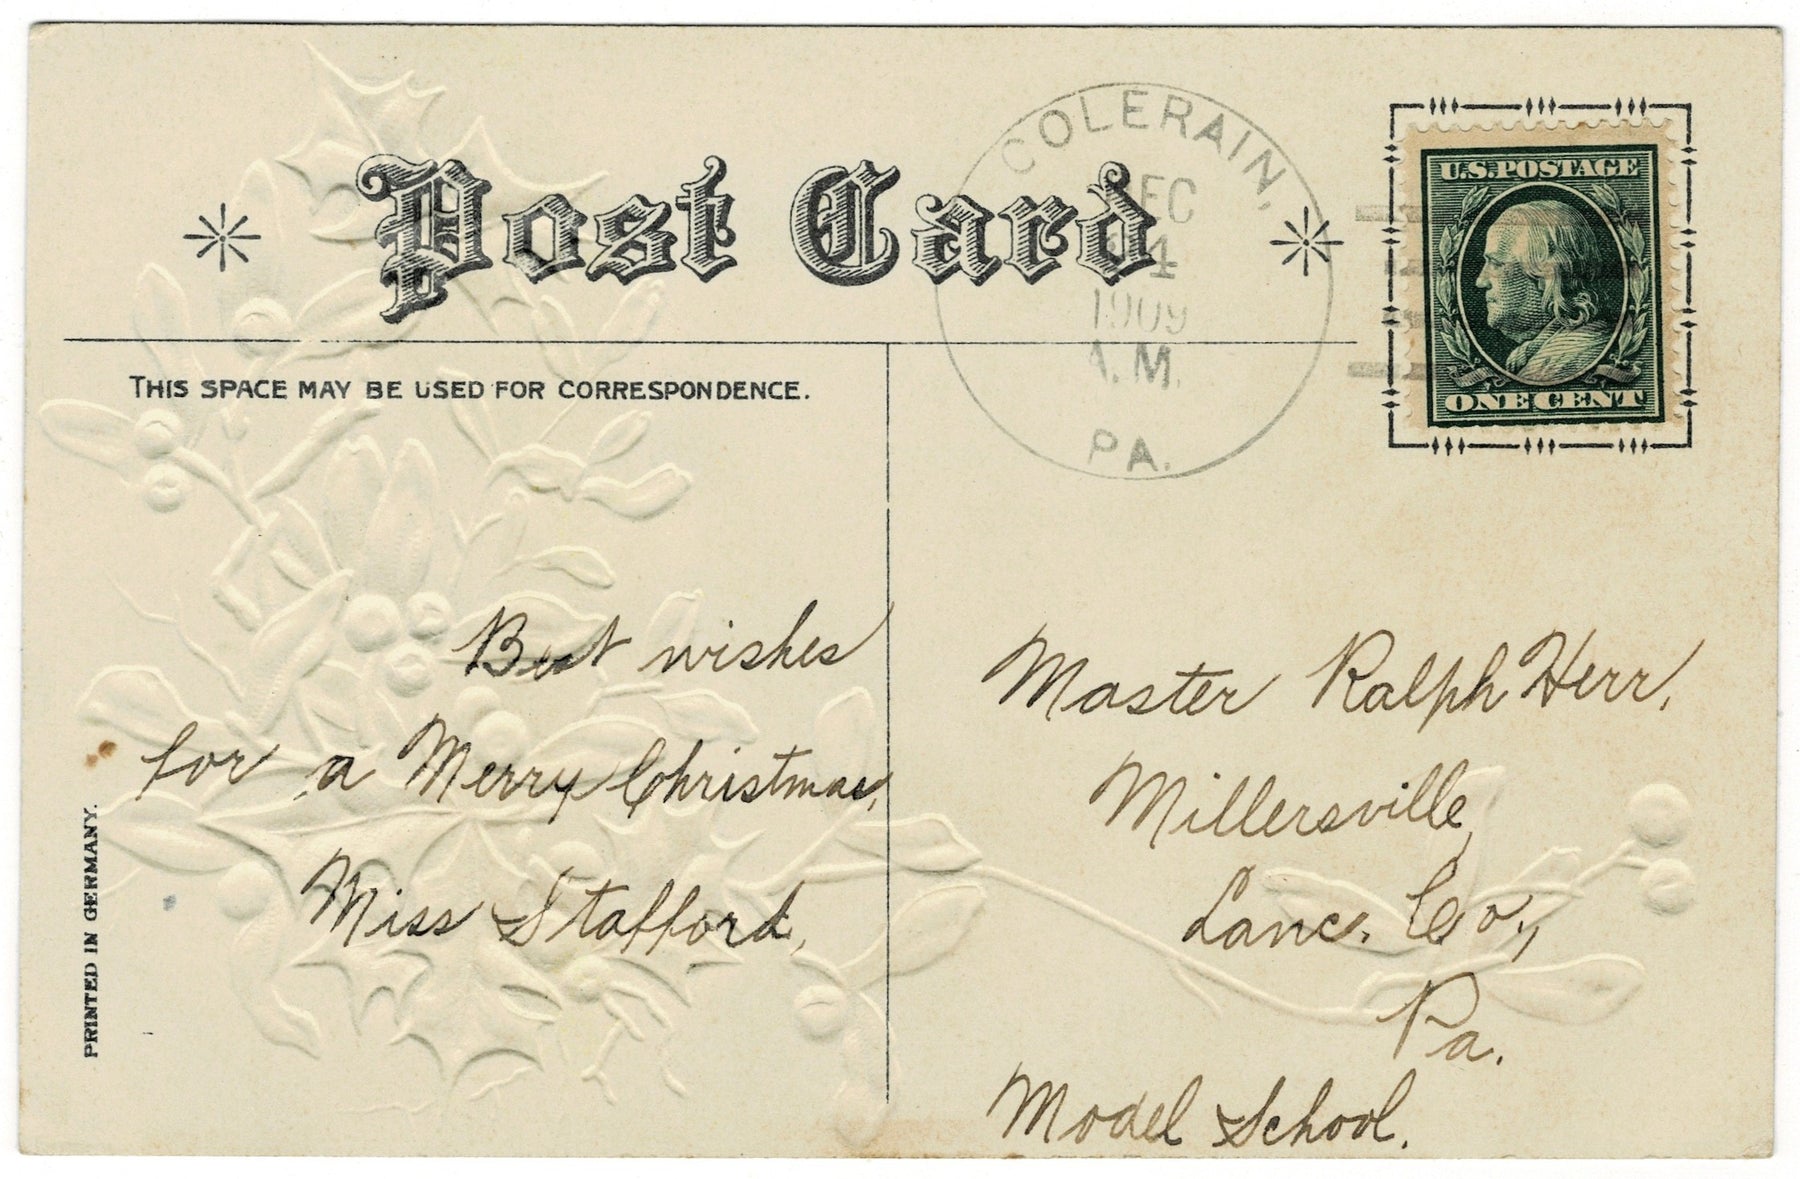 Post Card
COLERAIN,
DEC
1909
A.M.
PA.
U.S. POSTAGE
ONE CENT
THIS SPACE MAY BE USED FOR CORRESPONDENCE.
Best wishes
for a Merry Christmas,
Miss Stafford,
Master Ralph Herr,
Millersville,
Lanc. Co.,
Pa.
Model School.
PRINTED IN GERMANY.